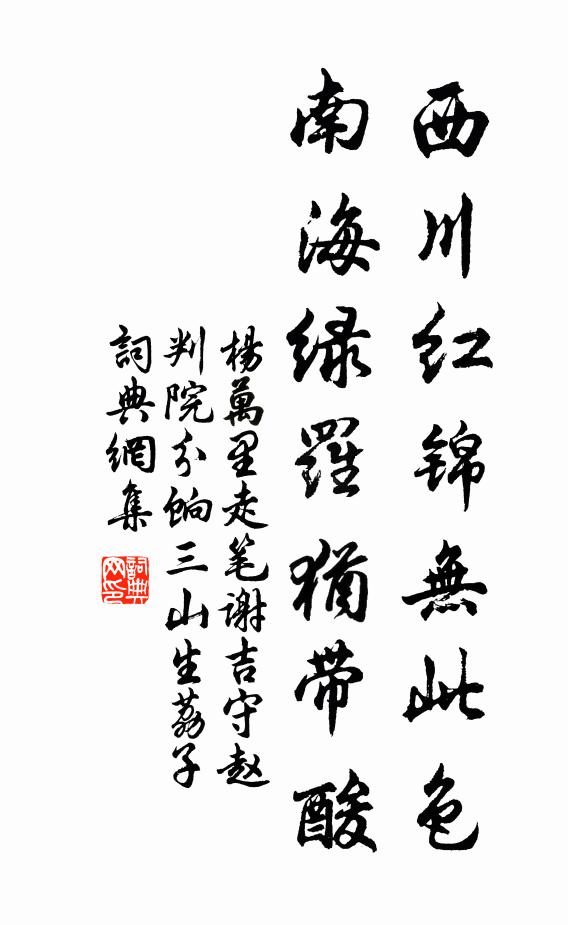 西川红锦無此色
南海绿羅猶带酸
楊萬里走笔谢吉守赵
判院分饷三山生荔子
詞典網集
詞典网印